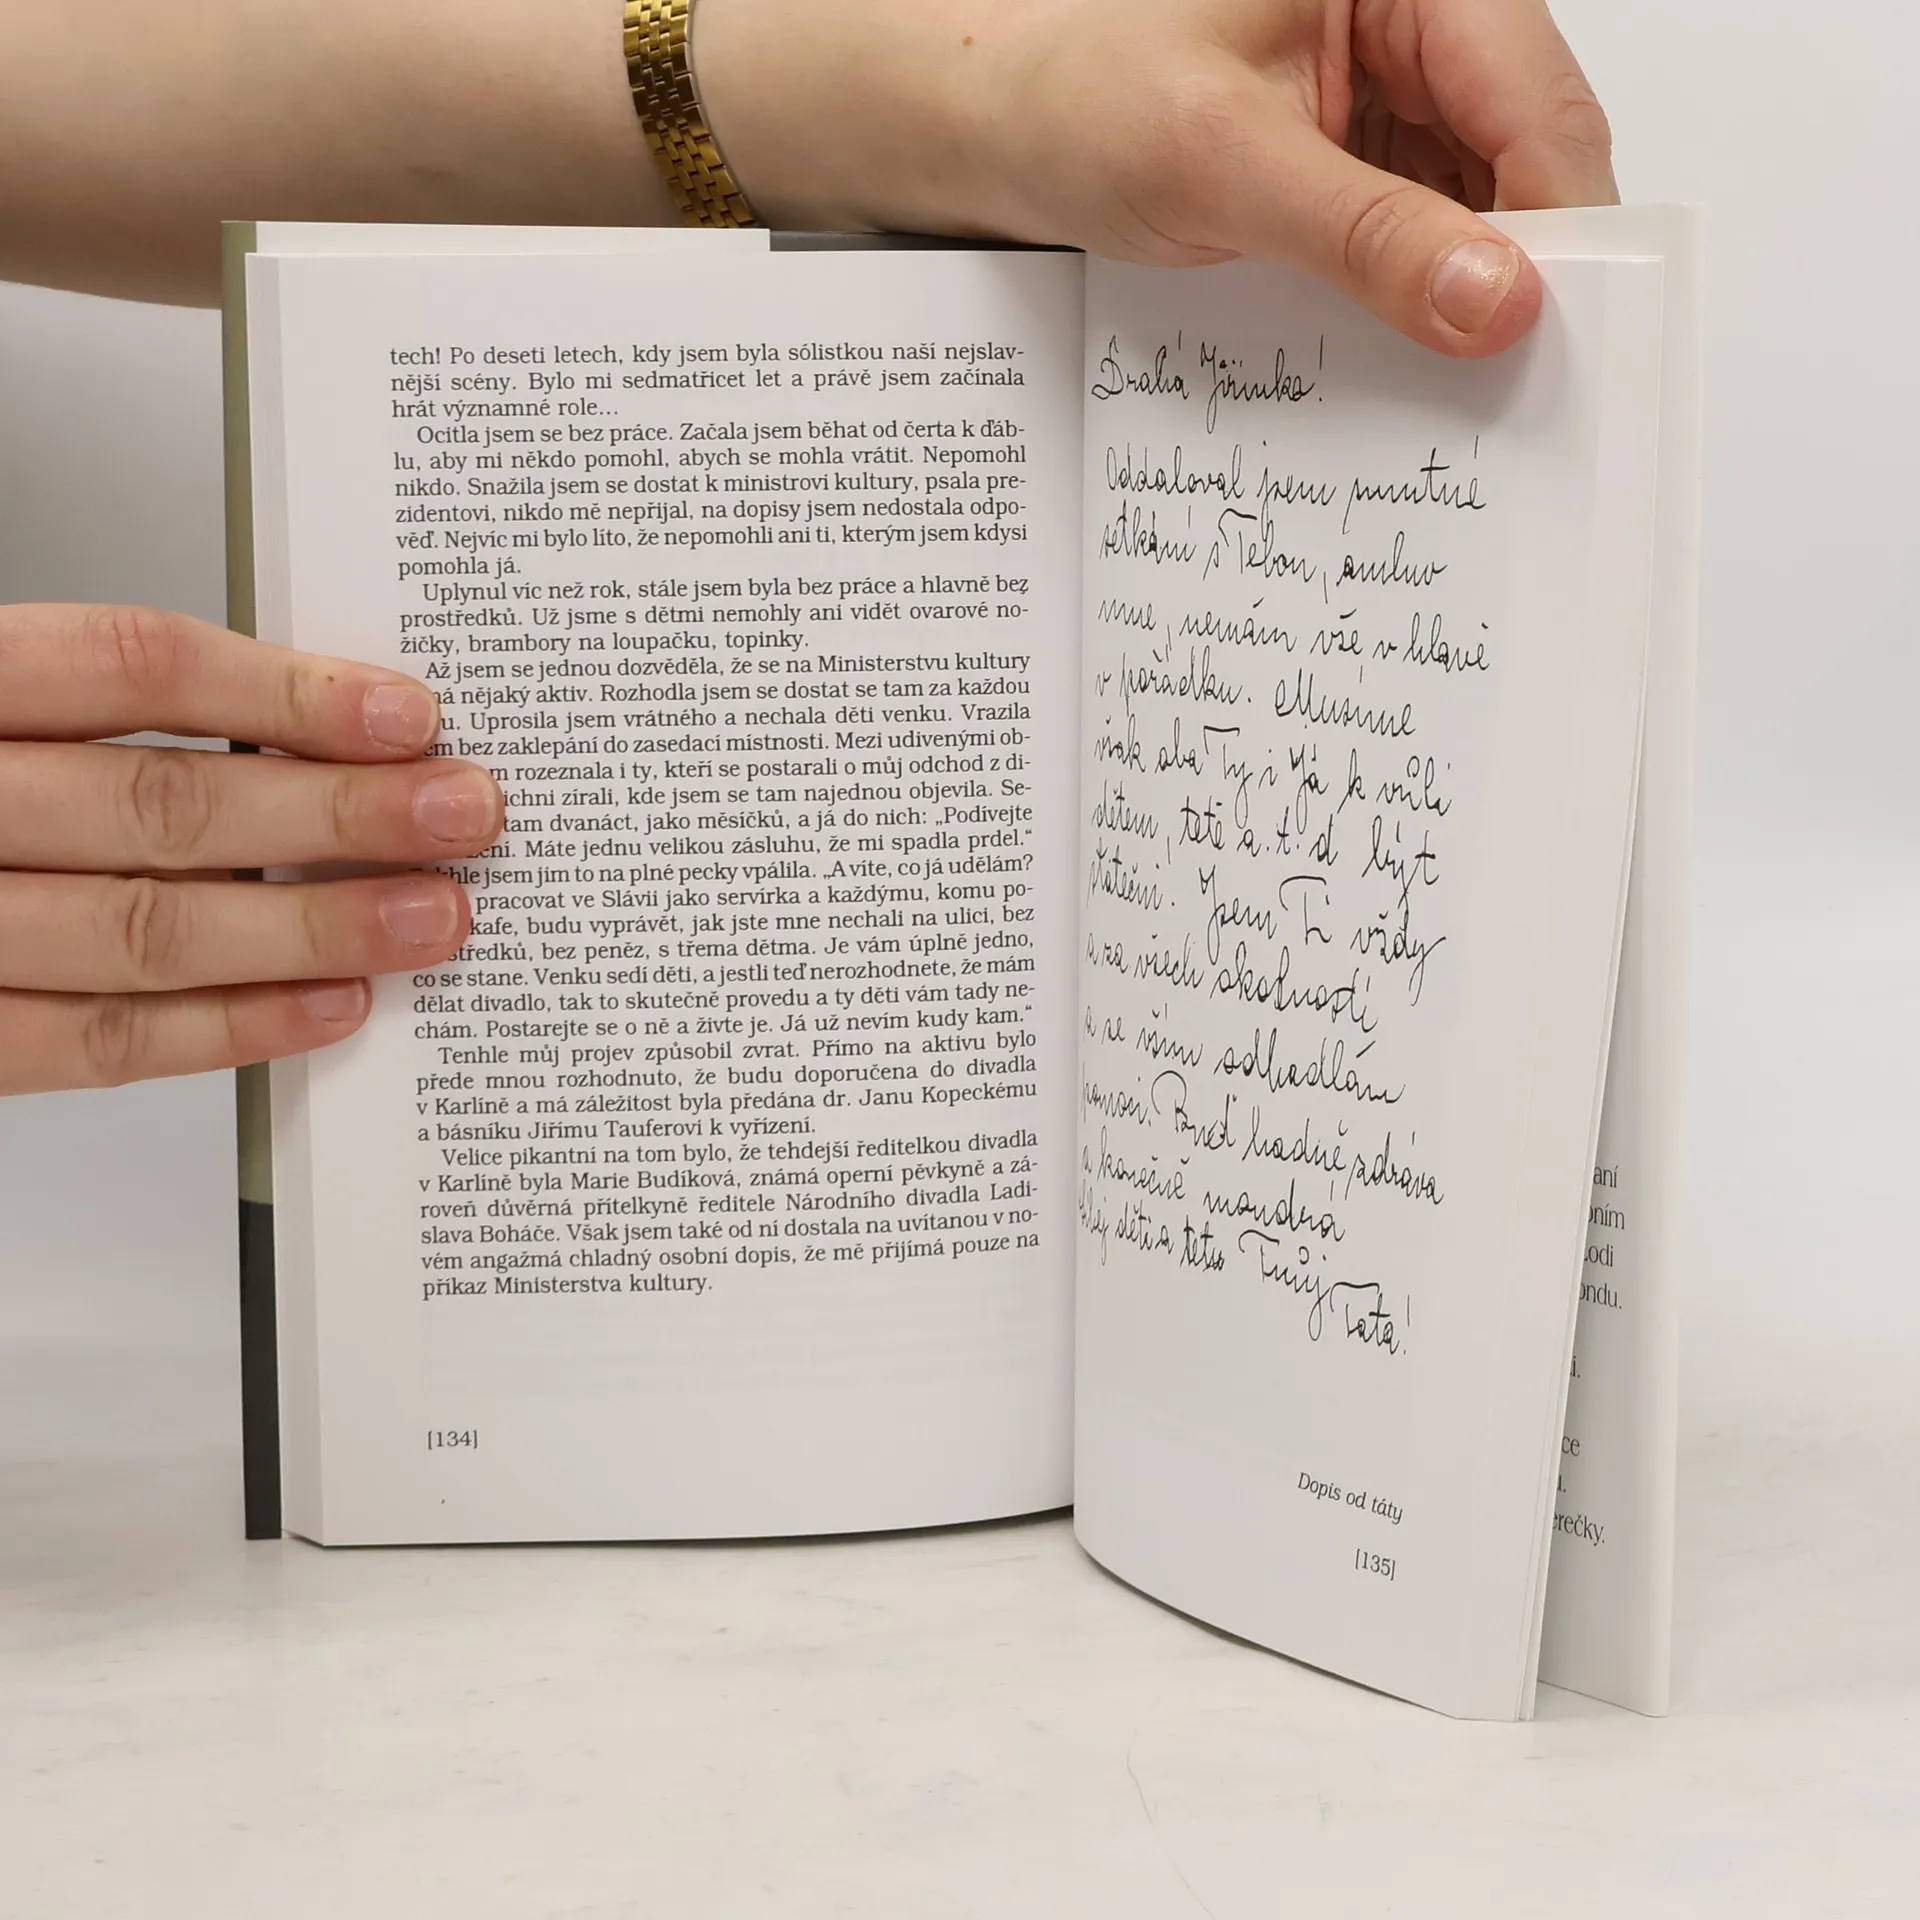 tech! Po deseti letech, kdy jsem byla sólistkou naší nejslav-
nější scény. Bylo mi sedmatřicet let a právě jsem začínala
hrát významné role...
Ocitla jsem se bez práce. Začala jsem běhat od čerta k ďáb-
lu, aby mi někdo pomohl, abych se mohla vrátit. Nepomohl
nikdo. Snažila jsem se dostat k ministrovi kultury, psala pre-
zidentovi, nikdo mě nepřijal, na dopisy jsem nedostala odpo-
věď. Nejvíc mi bylo líto, že nepomohli ani ti, kterým jsem kdysi
pomohla já.
Uplynul víc než rok, stále jsem byla bez práce a hlavně bez
prostředků. Už jsme s dětmi nemohly ani vidět ovarové no-
žičky, brambory na loupačku, topinky.
Až jsem se jednou dozvěděla, že se na Ministerstvu kultury
nějaký aktiv. Rozhodla jsem se dostat se tam za každou
u. Uprosila jsem vrátného a nechala děti venku. Vrazila
em bez zaklepání do zasedací místnosti. Mezi udivenými ob-
m rozeznala i ty, kteří se postarali o můj odchod z di-
ichni zírali, kde jsem se tam najednou objevila. Se-
tam dvanáct, jako měsíčků, a já do nich: „Podívejte
ení. Máte jednu velikou zásluhu, že mi spadla prdel.“
hle jsem jim to na plné pecky vpálila. „A víte, co já udělám?
pracovat ve Slávii jako servírka a každýmu, komu po-
kafe, budu vyprávět, jak jste mne nechali na ulici, bez
středků, bez peněz, s třema dětma. Je vám úplně jedno,
co se stane. Venku sedí děti, a jestli teď nerozhodnete, že mám
dělat divadlo, tak to skutečně provedu a ty děti vám tady ne-
chám. Postarejte se o ně a živte je. Já už nevím kudy kam.“
Tenhle můj projev způsobil zvrat. Přímo na aktivu bylo
přede mnou rozhodnuto, že budu doporučena do divadla
v Karlíně a má záležitost byla předána dr. Janu Kopeckému
a básníku Jiřímu Tauferovi k vyřízení.
Velice pikantní na tom bylo, že tehdejší ředitelkou divadla
v Karlíně byla Marie Budíková, známá operní pěvkyně a zá-
roveň důvěrná přítelkyně ředitele Národního divadla Ladi-
slava Boháče. Však jsem také od ní dostala na uvítanou v no-
vém angažmá chladný osobní dopis, že mě přijímá pouze na
příkaz Ministerstva kultury.
[134]
Drahá Jiřinko!
Oddaloval jsem smutné
setkání s Tebou, omluv
mne, nemám vše v hlavě
v pořádku. Musíme
však oba Ty i Já k vůli
dětem, tetě a.t.d být
stateční. Jsem Ti vždy
a za všech okolností
a se vším odhodláním
pomoci. Buď hodně zdráva
a konečně moudrá
děti a tetu Tvůj
Tata!
Dopis od táty
[135]
aní
ním
odi
ondu.
i.
ce
erečky.